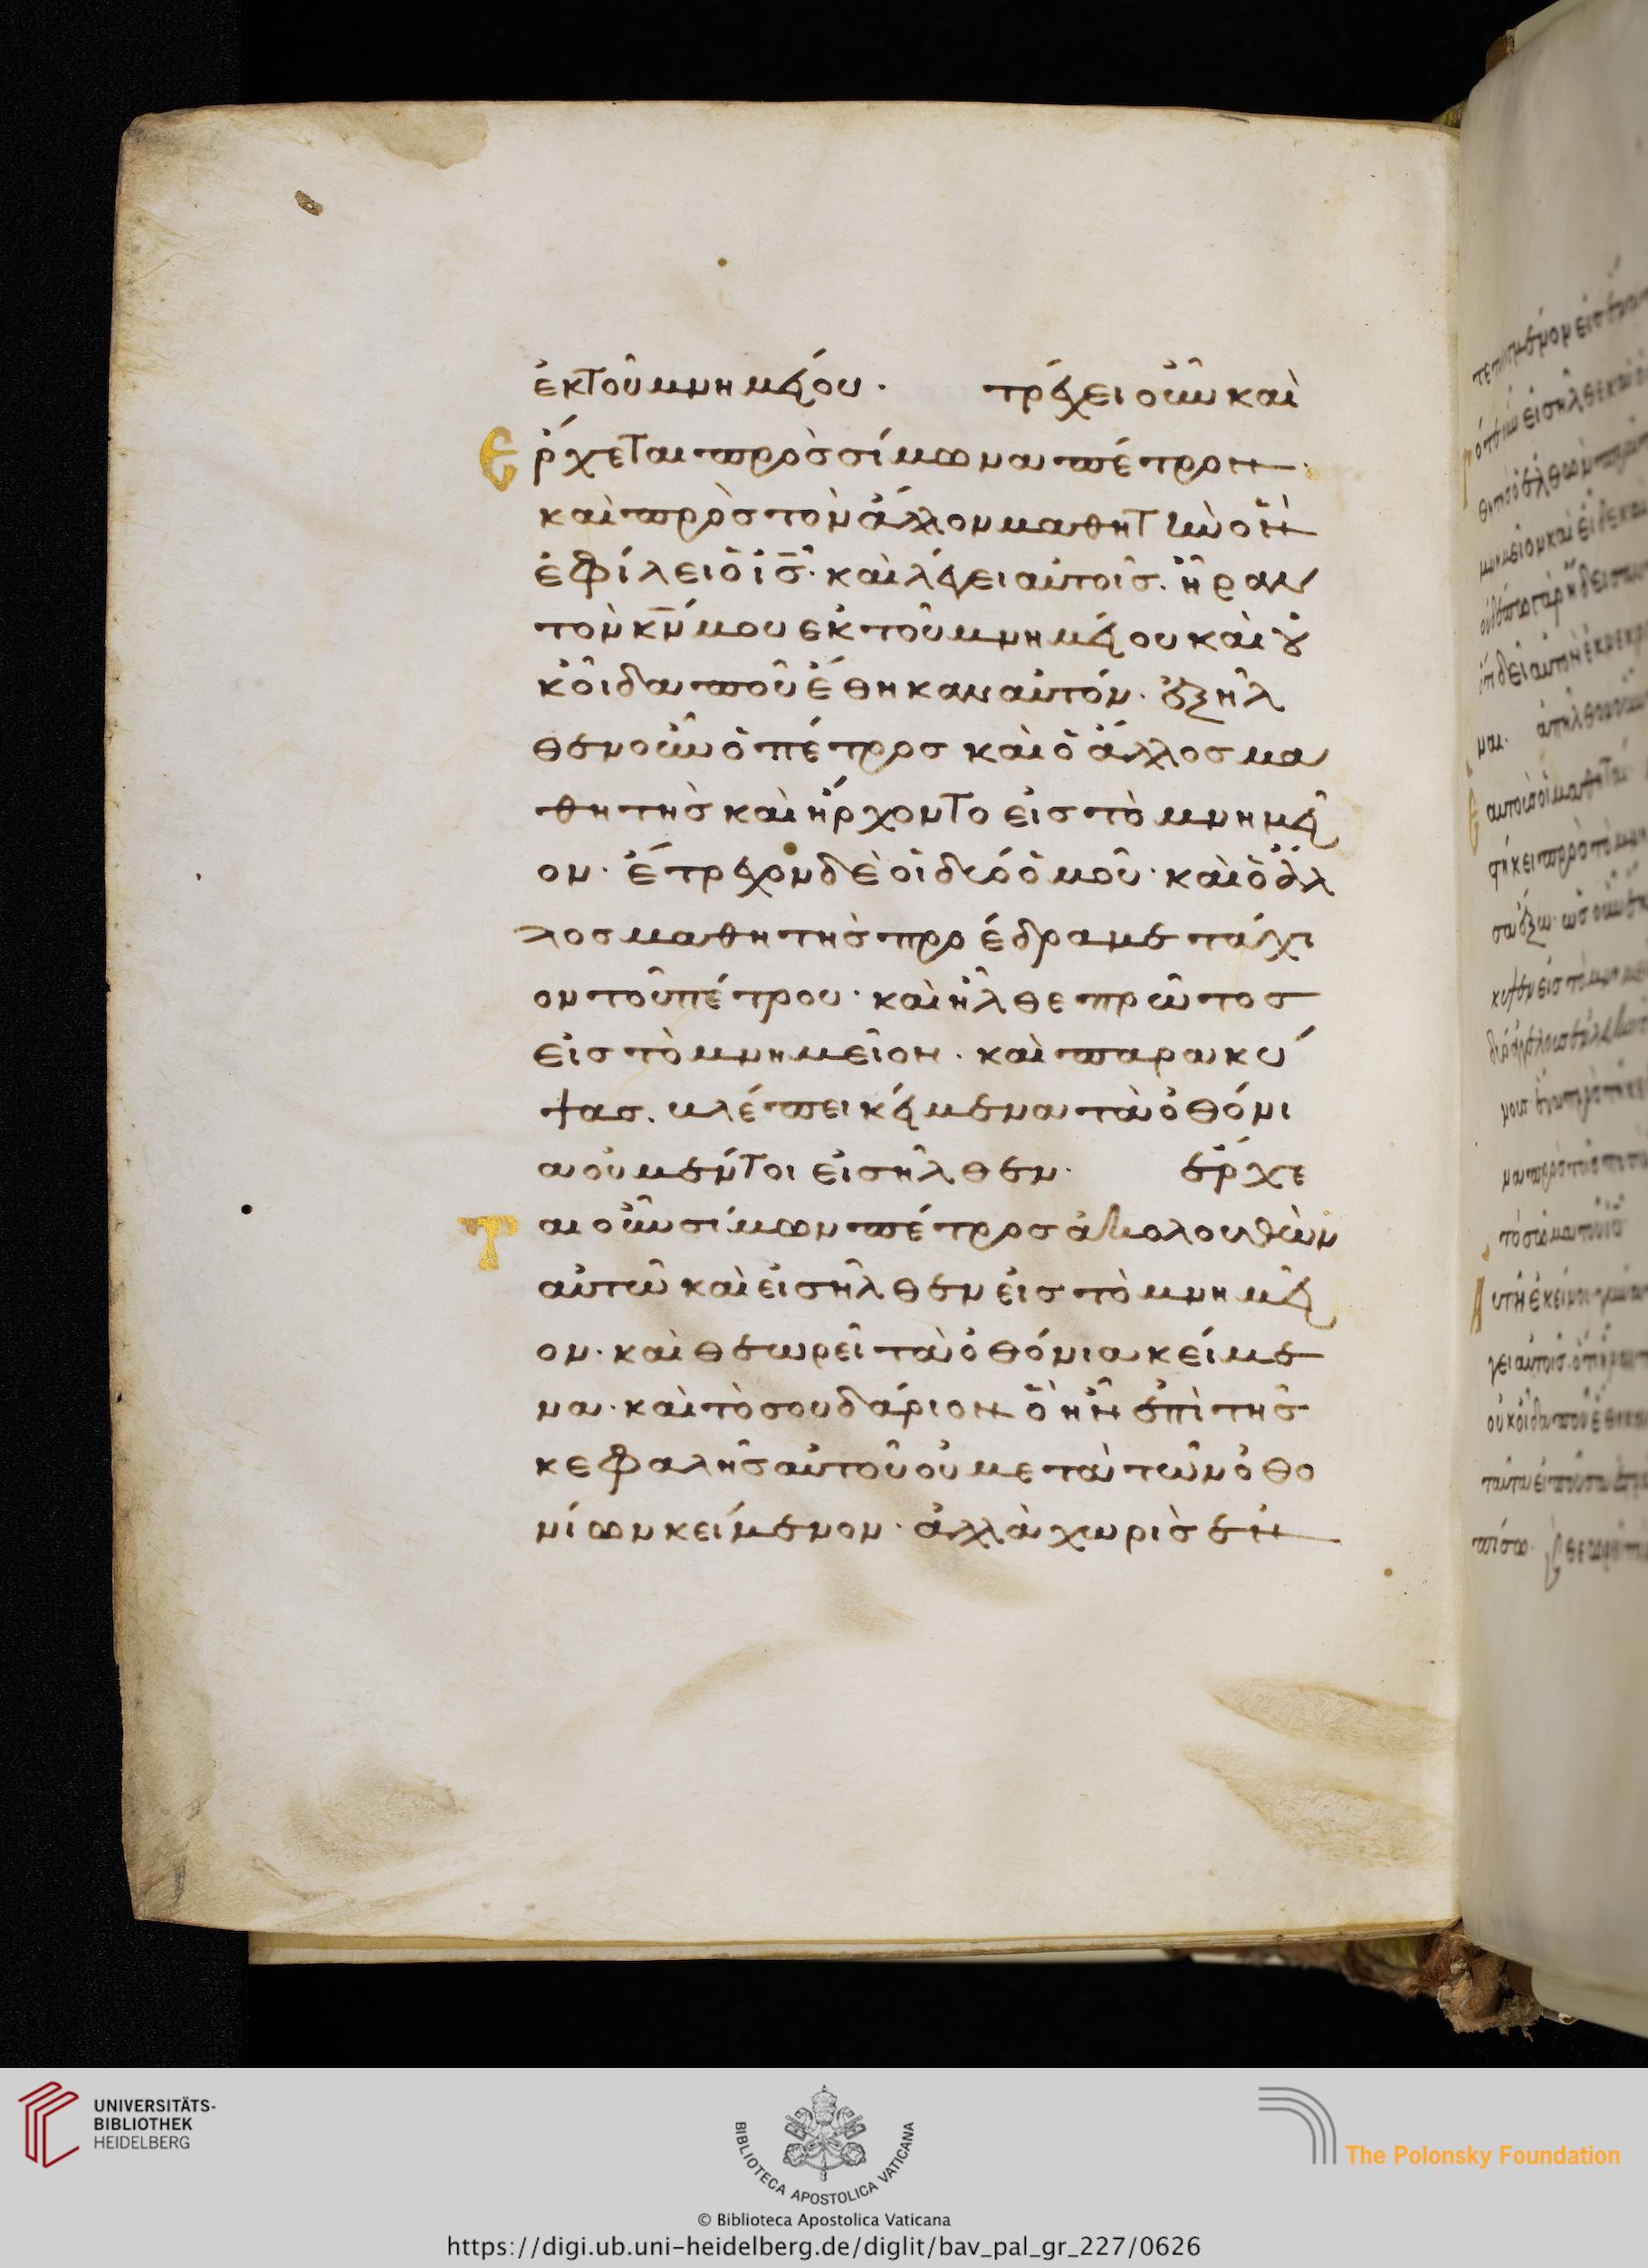 ἐκ τοῦ μνημείου· τρέχει οὖν καὶ
Ἔρχεται πρὸς σίμωνα πέτρον·
καὶ πρὸς τὸν ἄλλον μαθητὴν ὃν
ἐφίλει ὁ ἰς̅· καὶ λέγει αὐτοῖς· ἦραν
τὸν κν̅ μου ἐκ τοῦ μνημείου καὶ οὐ
κ οἶδα ποῦ ἔθηκαν αὐτόν· ἐξῆλ
θεν οὖν ὁ πέτρος καὶ ὁ ἄλλος μα
θητὴς καὶ ἤρχοντο εἰς τὸ μνημεῖ
ον· ἔτρεχον δὲ οἱ δύο ὁμοῦ· καὶ ὁ ἄλ
λος μαθητὴς προέδραμε τάχι
ον τοῦ πέτρου· καὶ ἦλθε πρῶτος
εἰς τὸ μνημεῖον· καὶ παρακύ
ψας. βλέπει κείμενα τὰ ὀθόνι
α οὐ μέντοι εἰσῆλθεν· ἔρχε
Ται οὖν σίμων πέτρος ἀκολουθῶν
αὐτῶ καὶ εἰσῆλθεν εἰς τὸ μνημεῖ
ον· καὶ θεωρεῖ τὰ ὀθόνια κείμε
να· καὶ τὸ σουδάριον ὃ ἦν ἐπὶ τῆς
κεφαλῆς αὐτοῦ οὐ μετὰ τῶν ὀθο
νίων κείμενον· ἀλλὰ χωρὶς ἐν
UNIVERSITÄTS-
BIBLIOTHEK
HEIDELBERG
BIBLIOTECA APOSTOLICA VATICANA
The Polonsky Foundation
© Biblioteca Apostolica Vaticana
https://digi.ub.uni-heidelberg.de/diglit/bav_pal_gr_227/0626